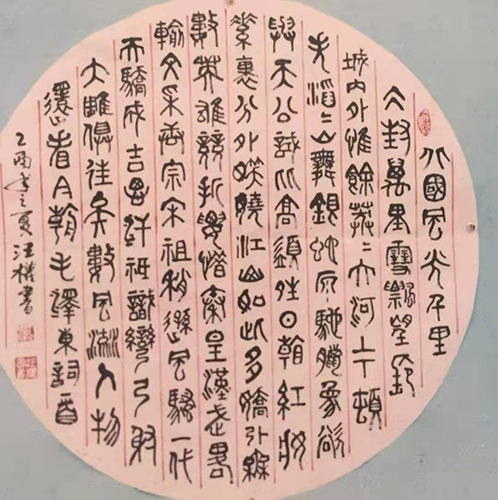 北國風光千里
冰封萬里雪飄望長
城內外惟餘莽〻大河上下頓
失滔〻山舞銀蛇原馳臘象欲
與天公試比高須晴日看紅妝
素裹分外妖嬈江山如此多嬌引無
數英雄競折腰惜秦皇漢武略
輸文采唐宗宋祖稍遜風騷一代
天驕成吉思汗祇識彎弓射
大雕俱往矣數風流人物
還看今朝毛澤東詞
乙酉年之夏汪權書